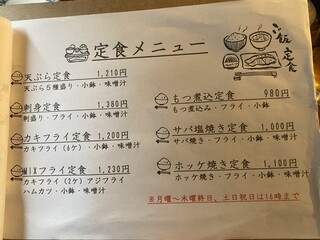 定食メニュー
定食
天ぷら定食 1,210円
天ぷら5種盛り・小鉢・味噌汁
刺身定食 1,380円
刺盛り・フライ・小鉢・味噌汁
カキフライ定食 1,200円
カキフライ(6ケ)・小鉢・味噌汁
MIXフライ定食 1,230円
カキフライ(2ケ)アジフライ
ハムカツ・小鉢・味噌汁
もつ煮込定食 980円
もつ煮込み・フライ・小鉢
サバ塩焼き定食 1,000円
サバ焼き・フライ・小鉢・味噌汁
ホッケ焼き定食 1,100円
ホッケ焼き・フライ・小鉢・味噌汁
※月曜～木曜終日、土日祝日は16時まで